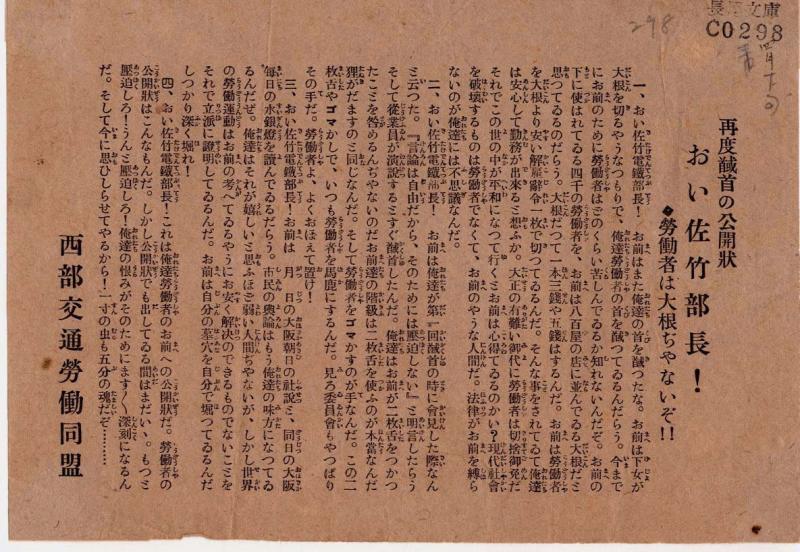 長江文庫
C0298
298
再度馘首の公開狀
おい佐竹部長!
勞働者は大根ぢやないぞ!!
一、おい佐竹電鐵部長! お前はまた俺達の首を馘つたな。お前は下女が
大根を切るやうなつもりで、俺達勞働者の首を馘つてるんだらう。今まで
にお前のために勞働者はどのくらい苦しんでるか知れないんだぞ。お前の
下に使はれてる四千の勞働者を、お前は八百屋の店に並んでる大根だと
思つてるのだらう。大根だつて一本三錢や五錢はするんだ。お前は勞働者
を大根より安い解雇辭令一枚で切つてるんだ。そんな事をされてて俺達
は安心して勤務が出來ると思ふか。大正の有難い御代に勞働者は切捨御免だ
それでこの世の中が平和になつて行くとお前は心得てるのかい?現代社會
を破壞するものは勞働者でなくて、お前のやうな人間だ。法律がお前を縛ら
ないのが俺達には不思議なんだ。
二、おい佐竹電鐵部長! お前は俺達が第一回馘首の時に會見した際なん
と云つた。『言論は自由だから、そのためには壓迫しない』と明言したらう
そして從業員が演說するとすぐ馘首したんだ。俺達はお前が二枚舌をつかつ
たことを咎めるんぢやないのだお前達の階級は二枚舌を使ふのが本當なんだ
狸がだますのと同じなんだ。そして勞働者をゴマかすのが手なんだ。この二
枚舌やゴマかしで、いつも勞働者を馬鹿にするんだ。見ろ委員會もやつぱり
その手だ。勞働者よ、よくおぼえて置け!
三、おい佐竹電鐵部長!お前は 月 日の大阪朝日の社說と、同日の大阪
每日の水銀燈を讀んでるるだらう。市民の輿論はもう俺達の味方になつてる
るんだぜ。俺達はそれが嬉しいと思ふほど弱い人間ぢやないが、しかし世界
の勞働運動はお前の考へてるやうにお安く解決のできるものでないことを
それで立派に證明してるるんだ。お前は自分の墓穴を自分で堀つてるるんだ
しつかり深く堀れ!
四、おい佐竹電鐵部長!これは俺達勞働者のお前への公開狀だ。勞働者の
公開狀はこんなもんだ。しかし公開狀でも出してる間はまだいゝ。もつと
壓迫しろ!うんと壓迫しろ!俺達の恨みがそのためにます〳〵深刻になるん
だ。そして今に思ひしらせてやるから!一寸の虫も五分の魂だぞ………
西部交通勞働同盟